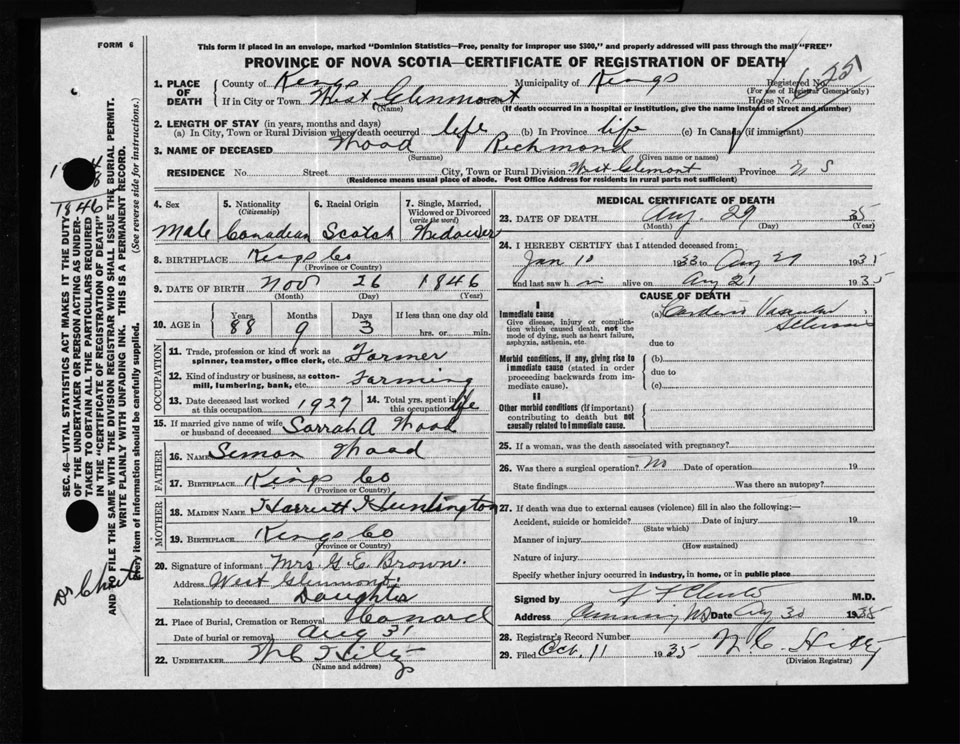 FORM 6
This form if placed in an envelope, marked "Dominion Statistics—Free, penalty for improper use $300," and properly addressed will pass through the mail "FREE"
PROVINCE OF NOVA SCOTIA—CERTIFICATE OF REGISTRATION OF DEATH
1. PLACE OF DEATH County of Kings Municipality of Kings Registered No.
(For use of Registrar General only)
If in City or Town West Glenmont House No.
(Name) (If death occurred in a hospital or institution, give the name instead of street and number)
2. LENGTH OF STAY (in years, months and days)
(a) In City, Town or Rural Division where death occurred life (b) In Province life (c) In Canada (if immigrant)
3. NAME OF DECEASED Wood Richmond
(Surname) (Given name or names)
RESIDENCE No. Street City, Town or Rural Division West Glenmont Province N S
(Residence means usual place of abode. Post Office Address for residents in rural parts not sufficient)
4. Sex 5. Nationality (Citizenship) 6. Racial Origin 7. Single, Married, Widowed or Divorced (write the word)
Male Canadian Scotch Widower
8. BIRTHPLACE Kings Co
(Province or Country)
9. DATE OF BIRTH Nov 26 1846
(Month) (Day) (Year)
10. AGE in Years Months Days If less than one day old
88 9 3 hrs. or min.
OCCUPATION
11. Trade, profession or kind of work as spinner, teamster, office clerk, etc. Farmer
12. Kind of industry or business, as cotton-mill, lumbering, bank, etc. Farming
13. Date deceased last worked at this occupation 1927 14. Total yrs. spent in this occupation life
15. If married give name of wife or husband of deceased Sarrah A Wood
FATHER
16. NAME Simon Wood
17. BIRTHPLACE Kings Co
(Province or Country)
MOTHER
18. MAIDEN NAME Harriett Huntington
19. BIRTHPLACE Kings Co
(Province or Country)
20. Signature of informant Mrs. G. E. Brown.
Address West Glenmont.
Relationship to deceased Daughter
21. Place of Burial, Cremation or Removal Conard
Date of burial or removal Aug 31
22. UNDERTAKER
(Name and address)
MEDICAL CERTIFICATE OF DEATH
23. DATE OF DEATH Aug. 29 35
(Month) (Day) (Year)
24. I HEREBY CERTIFY that I attended deceased from:
Jan 10 1933 to Aug 29 1935
and last saw h im alive on Aug 21 1935
CAUSE OF DEATH
I
Immediate cause (a) Cardio Vascular Sclerosis
Give disease, injury or complication which caused death, not the mode of dying, such as heart failure, asphyxia, asthenia, etc.
due to
Morbid conditions, if any, giving rise to immediate cause (stated in order proceeding backwards from immediate cause).
(b)
due to
(c)
II
Other morbid conditions (if important) contributing to death but not causally related to immediate cause.
25. If a woman, was the death associated with pregnancy?
26. Was there a surgical operation? No Date of operation 19
State findings Was there an autopsy?
27. If death was due to external causes (violence) fill in also the following:—
Accident, suicide or homicide? Date of injury 19
(State which)
Manner of injury
(How sustained)
Nature of injury
Specify whether injury occurred in industry, in home, or in public place
Signed by M.D.
Address Date Aug 30 1935
28. Registrar's Record Number
29. Filed Oct. 11 1935
(Division Registrar)
SEC. 46—VITAL STATISTICS ACT MAKES IT THE DUTY
OF THE UNDERTAKER OR PERSON ACTING AS UNDERTAKER TO OBTAIN ALL THE PARTICULARS REQUIRED
IN THE "CERTIFICATE OF REGISTRATION OF DEATH"
AND TO FILE THE SAME WITH THE DIVISION REGISTRAR WHO SHALL ISSUE THE BURIAL PERMIT.
WRITE PLAINLY WITH UNFADING INK. THIS IS A PERMANENT RECORD.
Every item of information should be carefully supplied. (See reverse side for instructions.)
1846